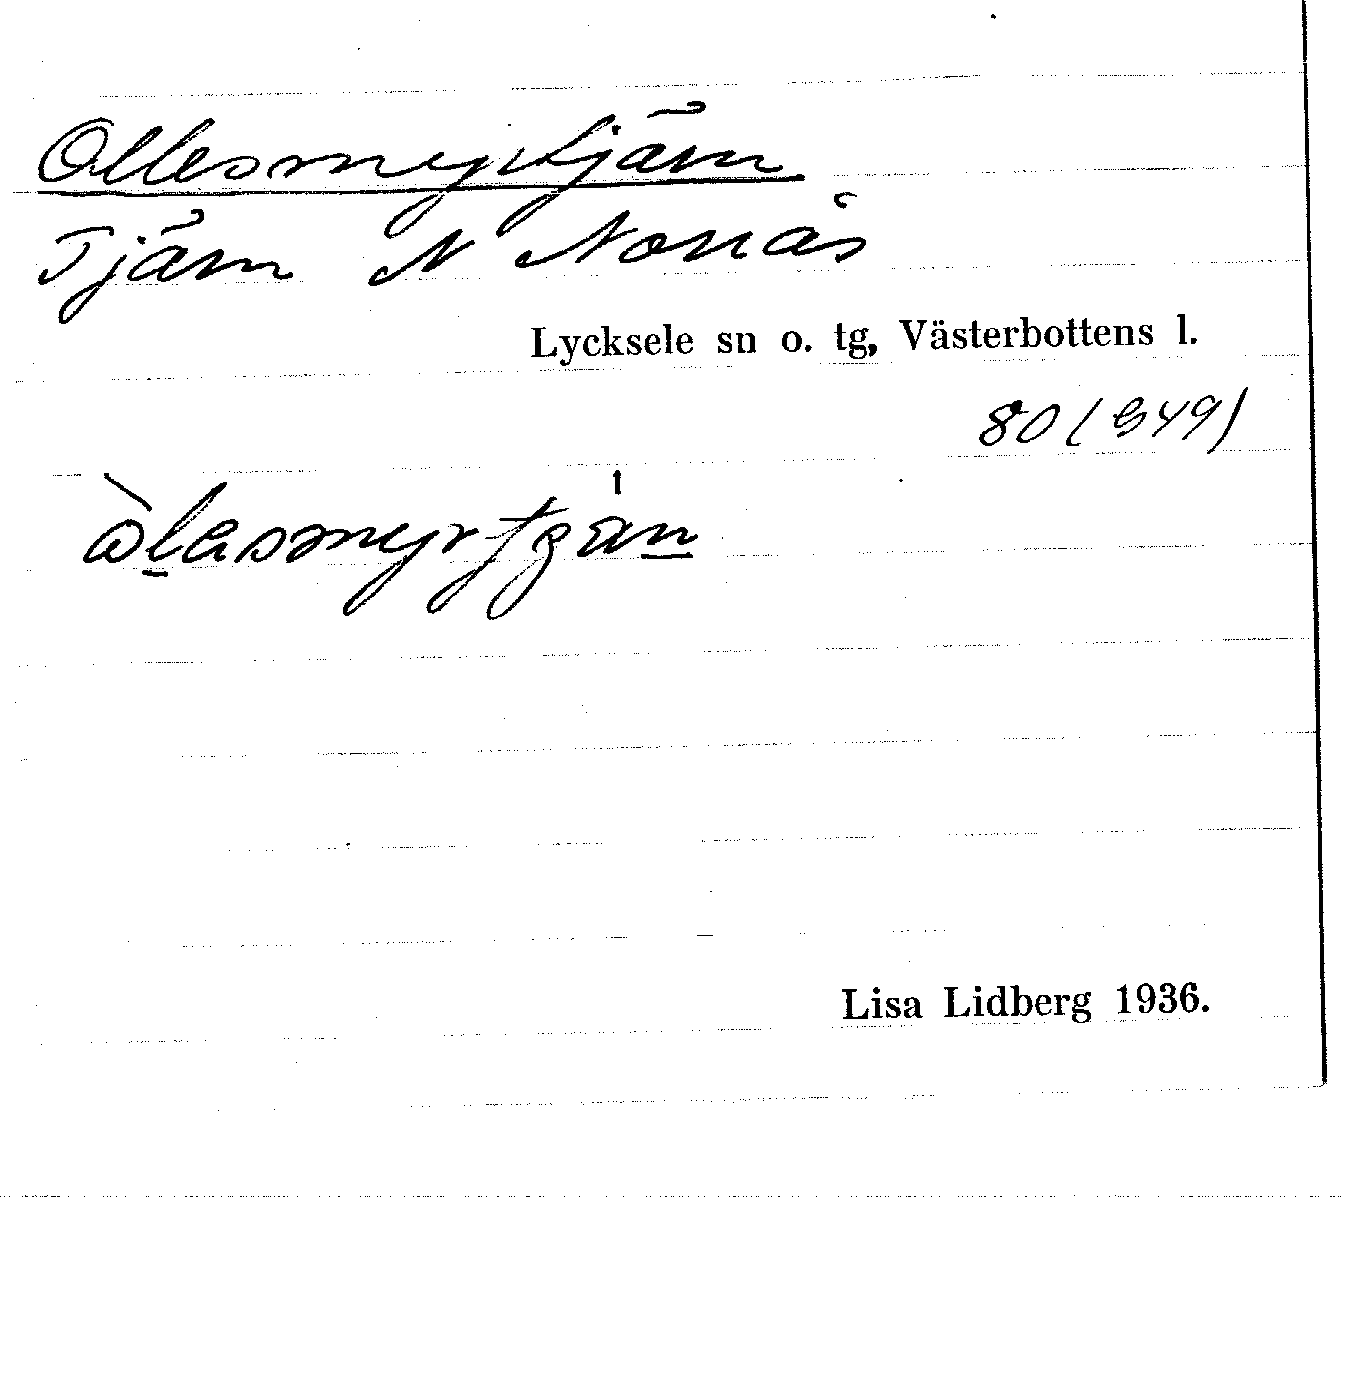 Ollesmyrtjärn
Tjärn N Nonäs
Lycksele sn o. tg, Västerbottens l.
80 (949)
Lisa Lidberg 1936.